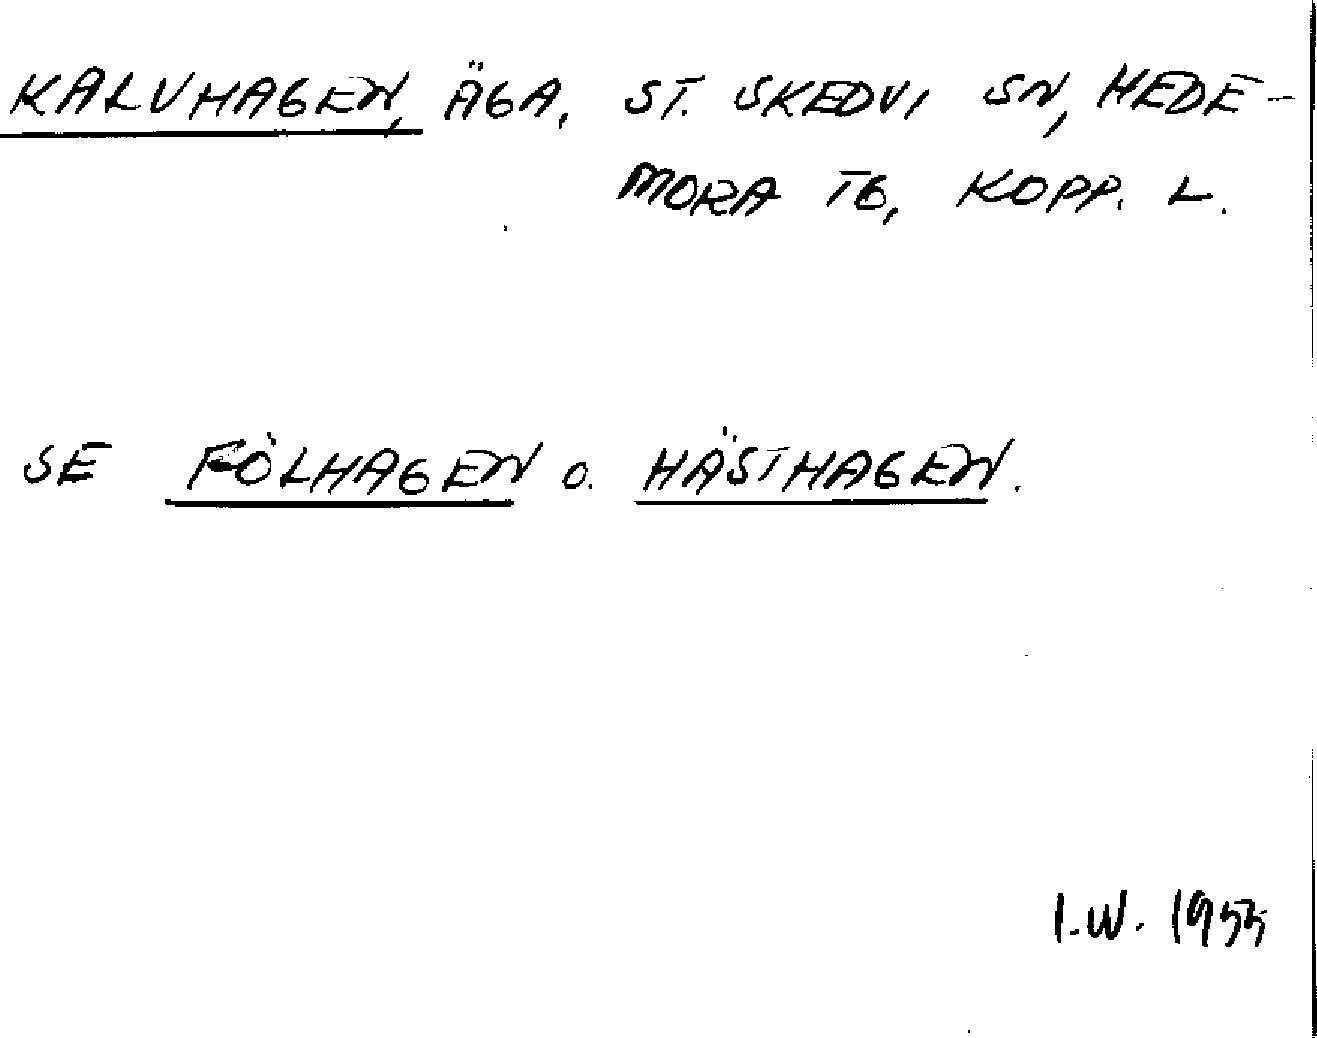 KALVHAGEN, ÄGA, ST. SKEDVI SN, HEDE-
MORA TG, KOPP. L.
SE FÖLHAGEN O. HÄSTHAGEN.
I.W. 1955